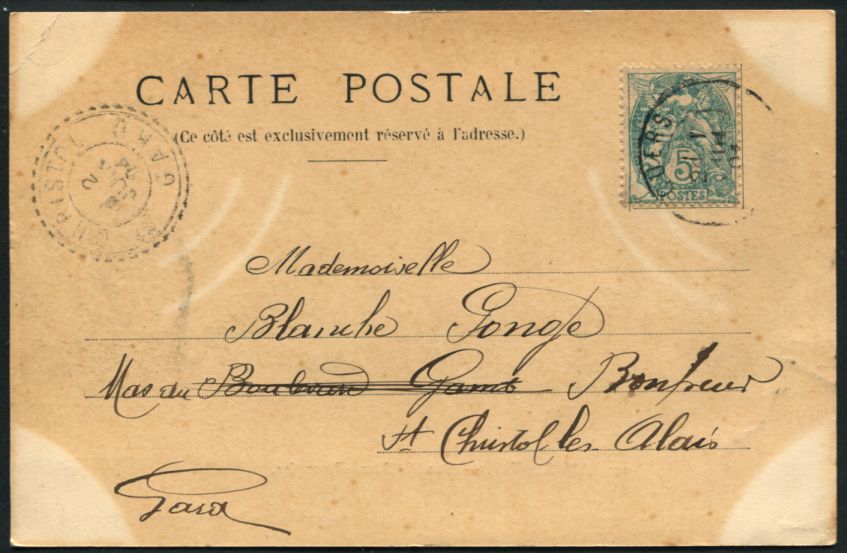 CARTE POSTALE
(Ce côté est exclusivement réservé à l'adresse.)
ST CHRISTOL GARD
5
POSTES
Mademoiselle
Blanche
Mas du Boulevard Bonheur
St Christol les Alais
Gard